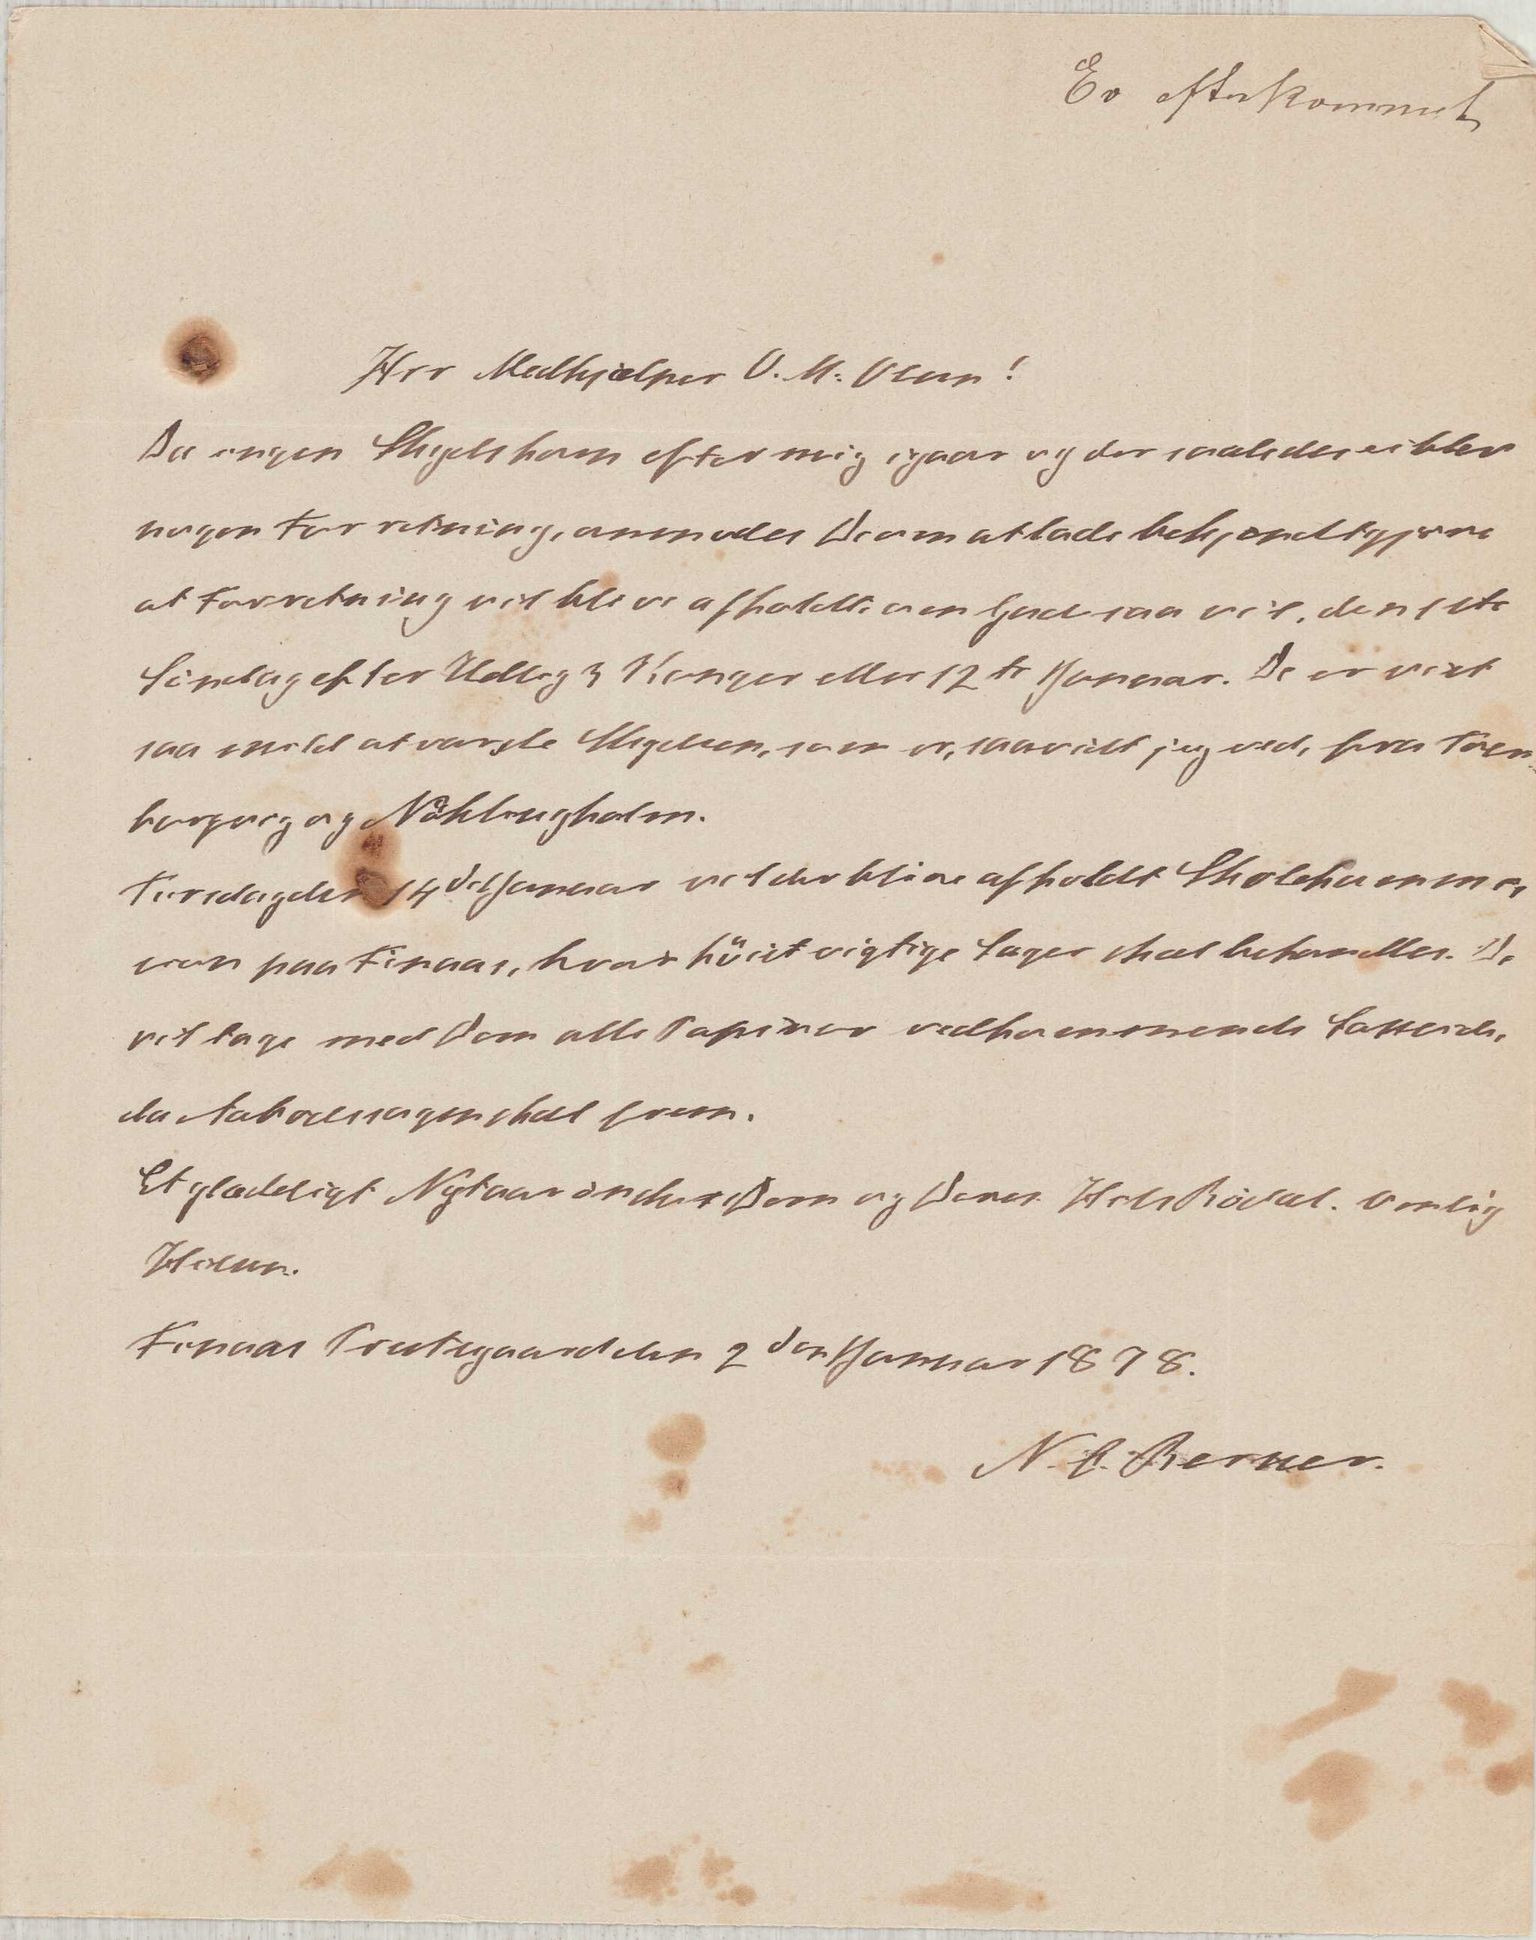 Er efterkommet
Hrr Medhjælper O. M. Olsen!
Da ingen Skyds kom efter mig igaar og der saaledes ei blev
nogen Forretning, anmodes De om at lade bekjendtgjøre
at Forretning vil blive afholdt, om Gud saa vil, den 1ste
Søndag efter Hellig 3 Konger eller 12te Januar. De er vist
saa snild at varsle Skydsen, som er, saavidt jeg ved, fra
borgvig og Nøklingholm.
Tirsdag den 14de Januar vil der blive afholdt Skolekommis,
sion paa Finaas, hvor höist vigtige Sager skal behandles. De
vil tage med Dem alle Papirer vedkommende
da skal frem.
Et glædeligt Nytaar önskes Dem og Deres. Hils Rödal. Venlig
Hilsen.
Finaas Præstegaard den 2den Januar 1878.
N. C. Berner.